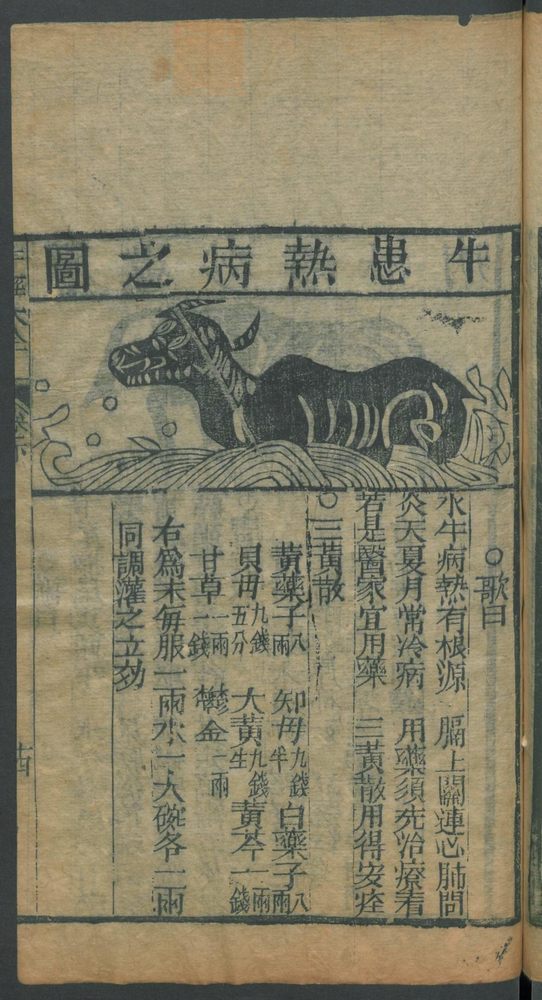 牛患熱病之圖
○歌曰
水牛病熱有根源　膈上關連心肺間
炎天夏月常冷病　用藥須先治療看
若是醫家宜用藥　三黃散用得安痊
○三黃散
黃藥子八兩　知母九錢半　白藥子八兩
貝母九錢五分　大黃九錢生　黃芩一兩一錢
甘草一兩一錢　鬱金二兩
右為末每服二兩水一大碗各二兩
同調灌之立効